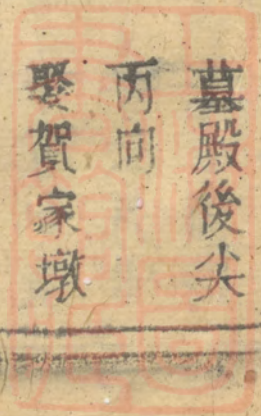 墓殿後尖
丙向
娶賀家墩